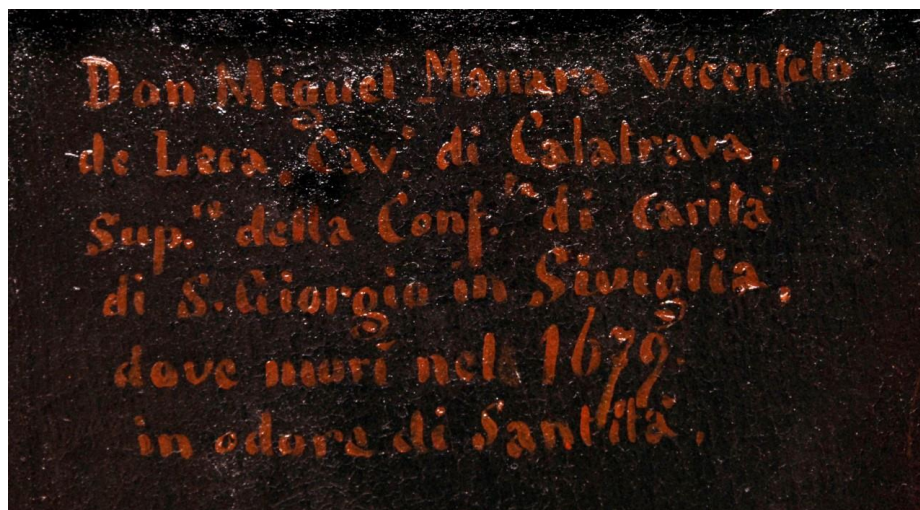 Don Miguel Manara Vicentelo
de Leca, Cav.ᵉ di Calatrava,
Sup.ʳᵉ della Conf.ᵗᵃ di Carità
di S. Giorgio in Siviglia,
dove morì nel 1679.
in odore di Santità.